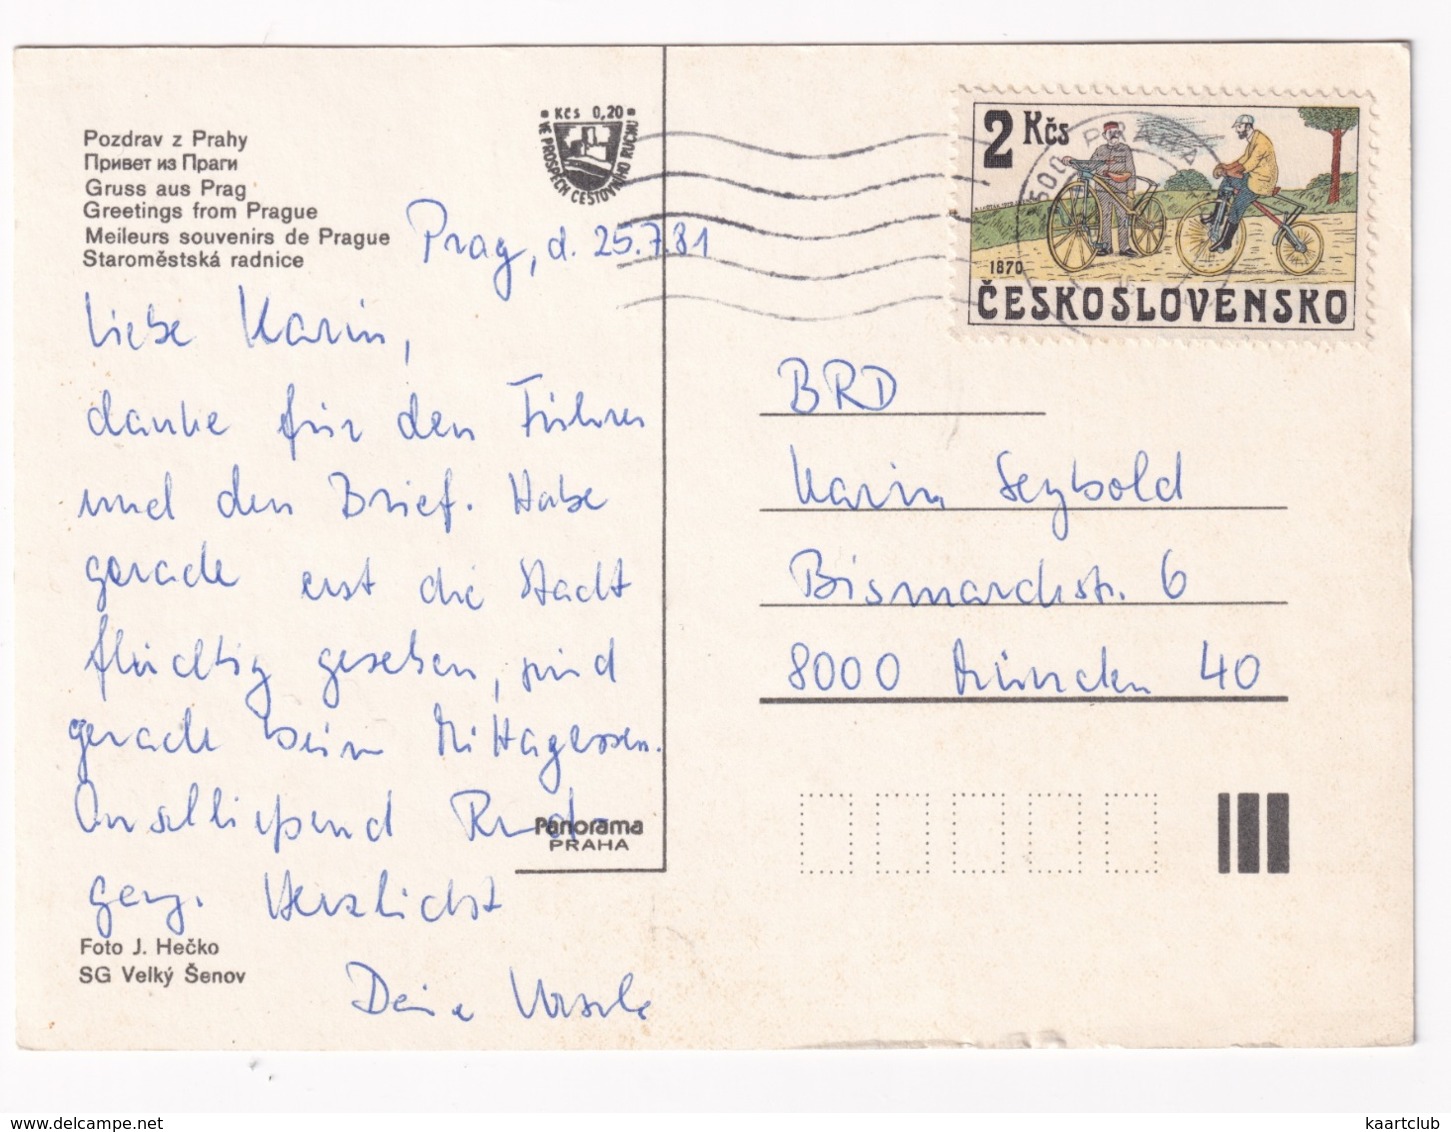 Pozdrav z Prahy
Привет из Праги
Gruss aus Prag
Greetings from Prague
Meileurs souvenirs de Prague
Staroměstská radnice
Kčs 0,20
VE PROSPĚCH CESTOVNÍHO RUCHU
Prag, d. 25.7.81
Liebe Karin,
danke für den Führer
und den Brief. Habe
gerade erst die Stadt
flüchtig gesehen, sind
gerade beim Mittagessen.
Anschließend Rund-
gang. Herzlichst
Deine Ursula
Panorama
PRAHA
Foto J. Hečko
SG Velký Šenov
2 Kčs
PRAHA
1870
ČESKOSLOVENSKO
BRD
Karin Seybold
Bismarckstr. 6
8000 München 40
www.delcampe.net
kaartclub